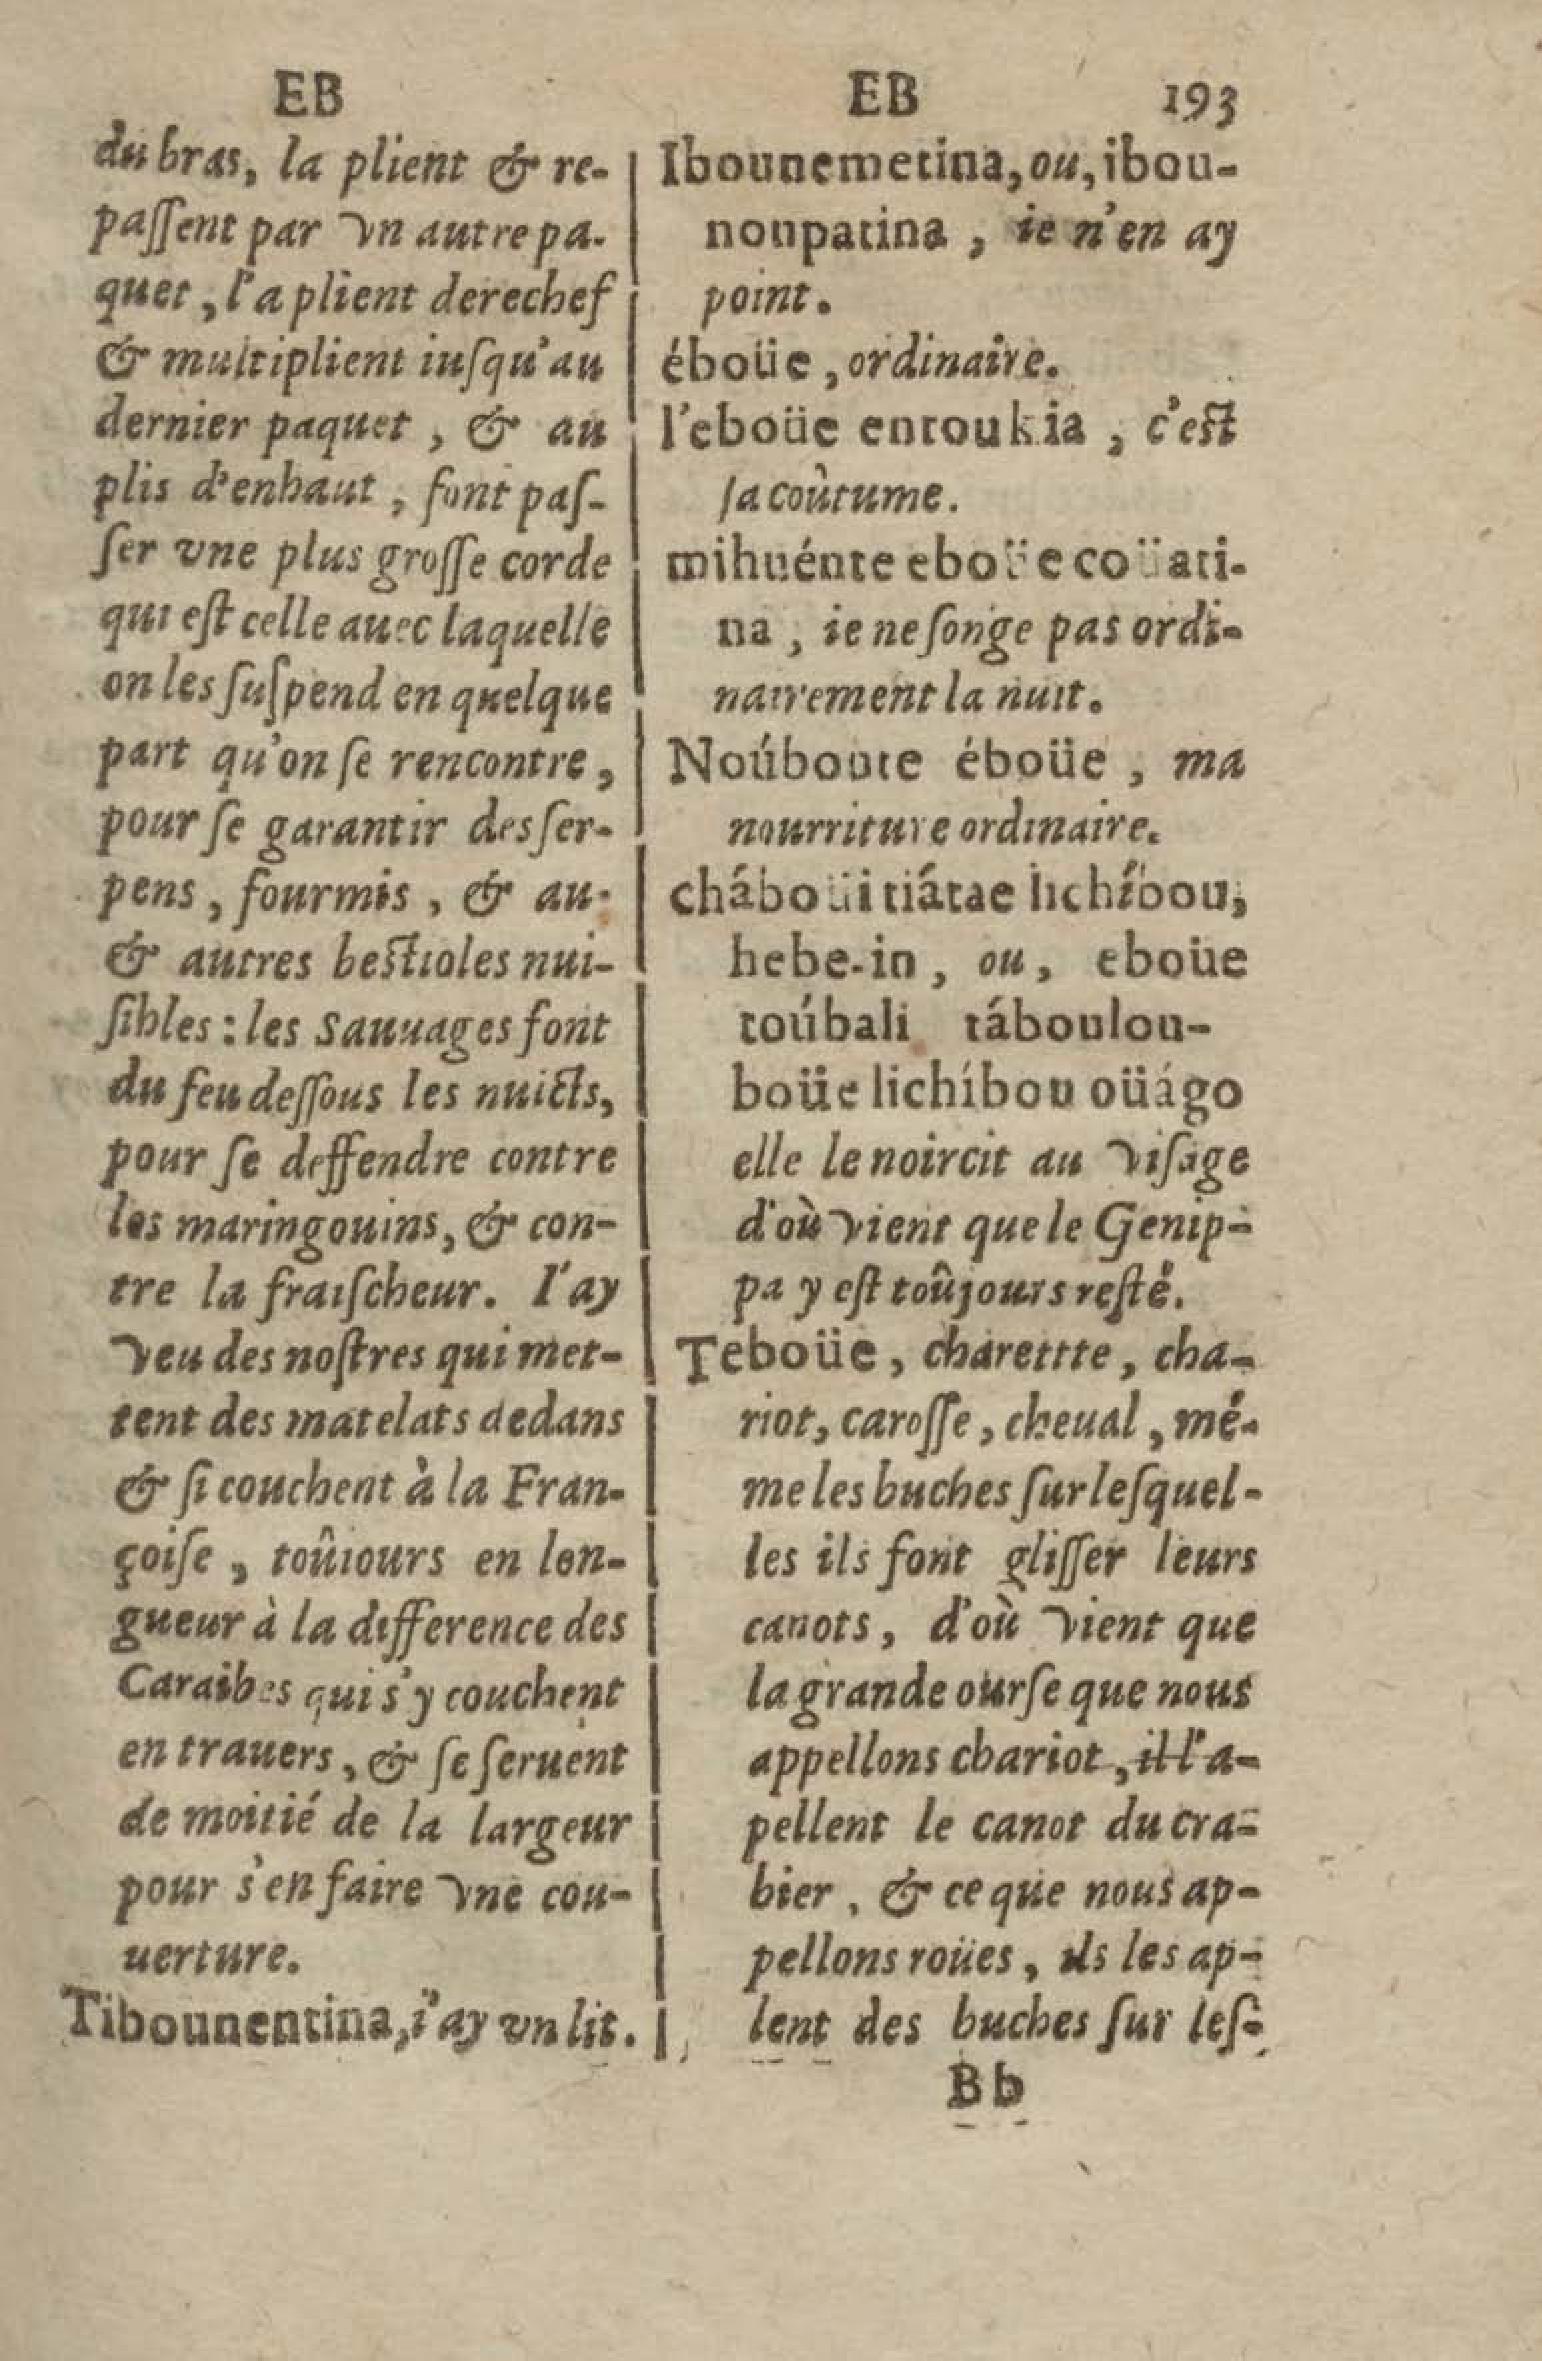 EB
du bras, la plient & re-
paſſent par vn autre pa-
quet, l'a plient derechef
& multiplient iuſqu'au
dernier paquet, & au
plis d'enhaut, font paſ-
ſer vne plus groſſe corde
qui eſt celle auec laquelle
on les ſuſpend en quelque
part qu'on ſe rencontre,
pour ſe garantir des ſer-
pens, fourmis, & au-
& autres beſtioles nui-
ſibles : les Sauuages font
du feu deſſous les nuicts,
pour ſe deffendre contre
les maringouins, & con-
tre la fraiſcheur. I'ay
veu des noſtres qui met-
tent des matelats dedans
& ſi couchent à la Fran-
çoiſe, toûiours en lon-
gueur à la difference des
Caraibes qui s'y couchent
en trauers, & ſe ſeruent
de moitié de la largeur
pour s'en faire vne cou-
uerture.
Tibounentina, i'ay vn lit.
EB 193
Ibounemetina, ou, ibou-
noupatina, ie n'en ay
point.
éboüe, ordinaire.
l'eboüe entoukia, c'eſt
ſa coûtume.
mihuénte eboüe coüati-
na, ie ne ſonge pas ordi-
nairement la nuit.
Noúboute éboüe, ma
nourriture ordinaire.
cháboüi tiátae lichíbou,
hebe-in, ou, eboüe
toúbali táboulou-
boüe lichíbou oüágo
elle le noircit au viſage
d'où vient que le Genip-
pa y eſt toûjours reſté.
Teboüe, charettte, cha-
riot, caroſſe, cheual, mé-
me les buches ſur leſquel-
les ils font gliſſer leurs
canots, d'où vient que
la grande ourſe que nous
appellons chariot, il l'a-
pellent le canot du cra-
bier, & ce que nous ap-
pellons roües, ils les ap-
lent des buches ſur leſ-
Bb